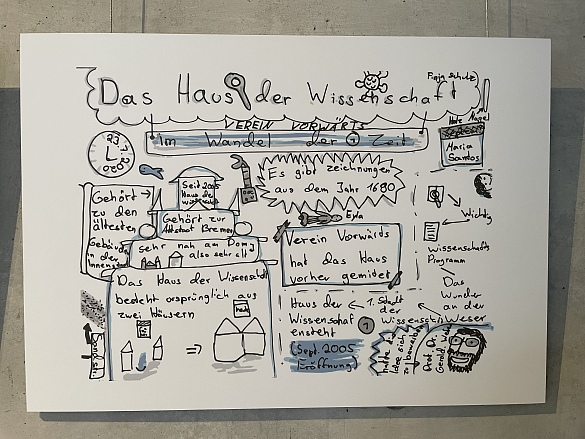 Das Haus der Wissenschaft
VEREIN VORWÄRTS
Im Wandel der Zeit
Maria
Santos
23
2020
Seit 2005
Haus der
Es gibt zeichnungen
aus dem Jahr 1690
Gehört
zu den
ältesten
Gebäuden
in der
Innenstadt
Gehört zur
Altstadt Bremen
sehr nah am Dom
also sehr alt
Eyla
Verein Vorwärts
hat das Haus
vorher gemietet
Wichtig
Wissenschafts
Programm
Das Haus der Wissenschaft
bedeht orsprünglich aus
zwei Häusern
Das
Wunder
an der
Weser
Haus der
Wissenschaf
ensteht
(Sept. 2005
Eröffnung)
1. Stadt
der
Wissenschaft
hatte die
Idee sich
zu bewerben
Prof. Dr.
Gerold